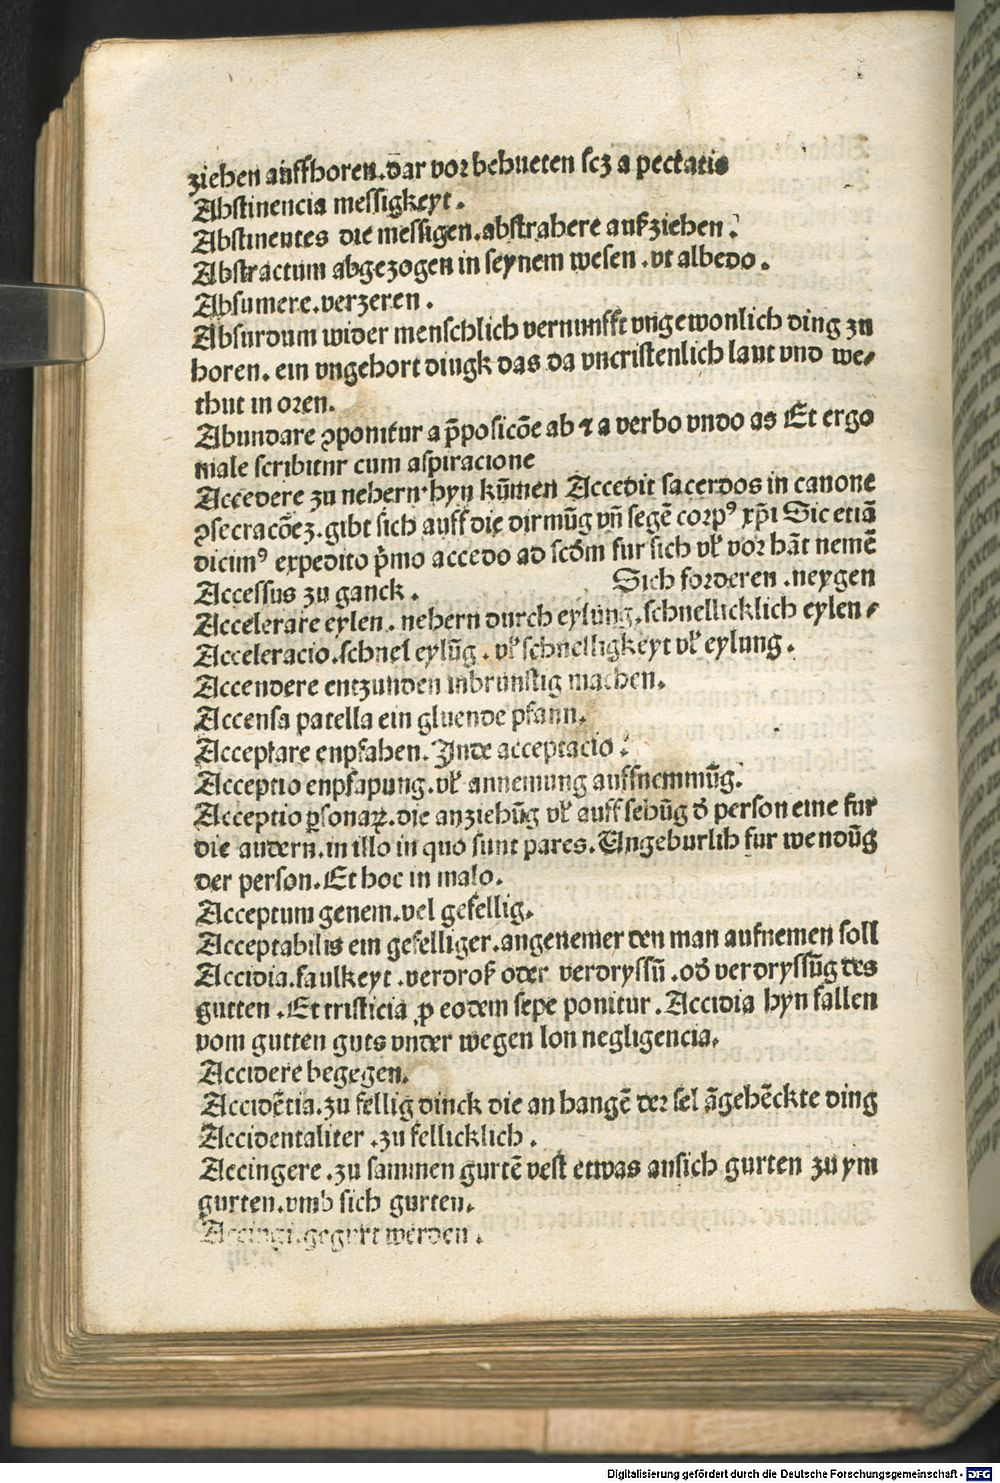 ziehen auffhoren.dar vor behueten scz a peccatis
Abstinencia messigkeyt.
Abstinentes die messigen.abstrahere aufziehen.
Abstractum abgezogen in seynem wesen.vt albedo.
Absumere.verzeren.
Absurdum wider menschlich vernunfft vngewonlich ding zu
horen. ein vngehort dingk das da vncristenlich laut vnd we⸗
thut in oren.
Abundare ꝯponitur a p̄posicōe ab ⁊ a verbo vndo as Et ergo
male scribitur cum aspiracione
Accedere zu nehern hyn kūmen Accedit sacerdos in canone
ꝯsecracōeꝫ.gibt sich auff die dirmūg vn̄ segē corpꝰ xp̄i Sic etiā
dicimꝰ expedito p̄mo accedo ad scd̄m fur sich vl̄ vor hāt nemē
Accessus zu ganck. Sich forderen.neygen
Accelerare eylen. nehern durch eylung.schnellicklich eylen⸗
Acceleracio.schnel eylūg.vl̄ schnelligkeyt vl̄ eylung.
Accendere entzunden inbrunstig machen.
Accensa patella ein gluende pfann.
Acceptare enpfahen. Inde acceptacio.
Acceptio enpfapung.vl̄ annemung auffnemmūg.
Acceptio ꝑsonaꝝ.die anziehūg vl̄ auff sehūg d̄ person eine fur
die andern.in illo in quo sunt pares.Ungeburlih fur wendūg
der person.Et hoc in malo.
Acceptum genem.vel gefellig.
Acceptabilis ein gefelliger.angenemer den man aufnemen soll
Accidia.faulkeyt.verdroß oder verdryssū.od̄ verdryssūg des
gutten.Et tristicia ꝓ eodem sepe ponitur.Accidia hyn fallen
vom gutten guts vnder wegen lon negligencia.
Accidere begegen.
Accidētia.zu fellig dinck die an hangē der sel āgehēckte ding
Accidentaliter.zu fellicklich.
Accingere.zu sammen gurtē vest etwas ansich gurten zu ym
gurten.vmb sich gurten.
Accingi.gegurt werden.
Digitalisierung gefördert durch die Deutsche Forschungsgemeinschaft - DFG